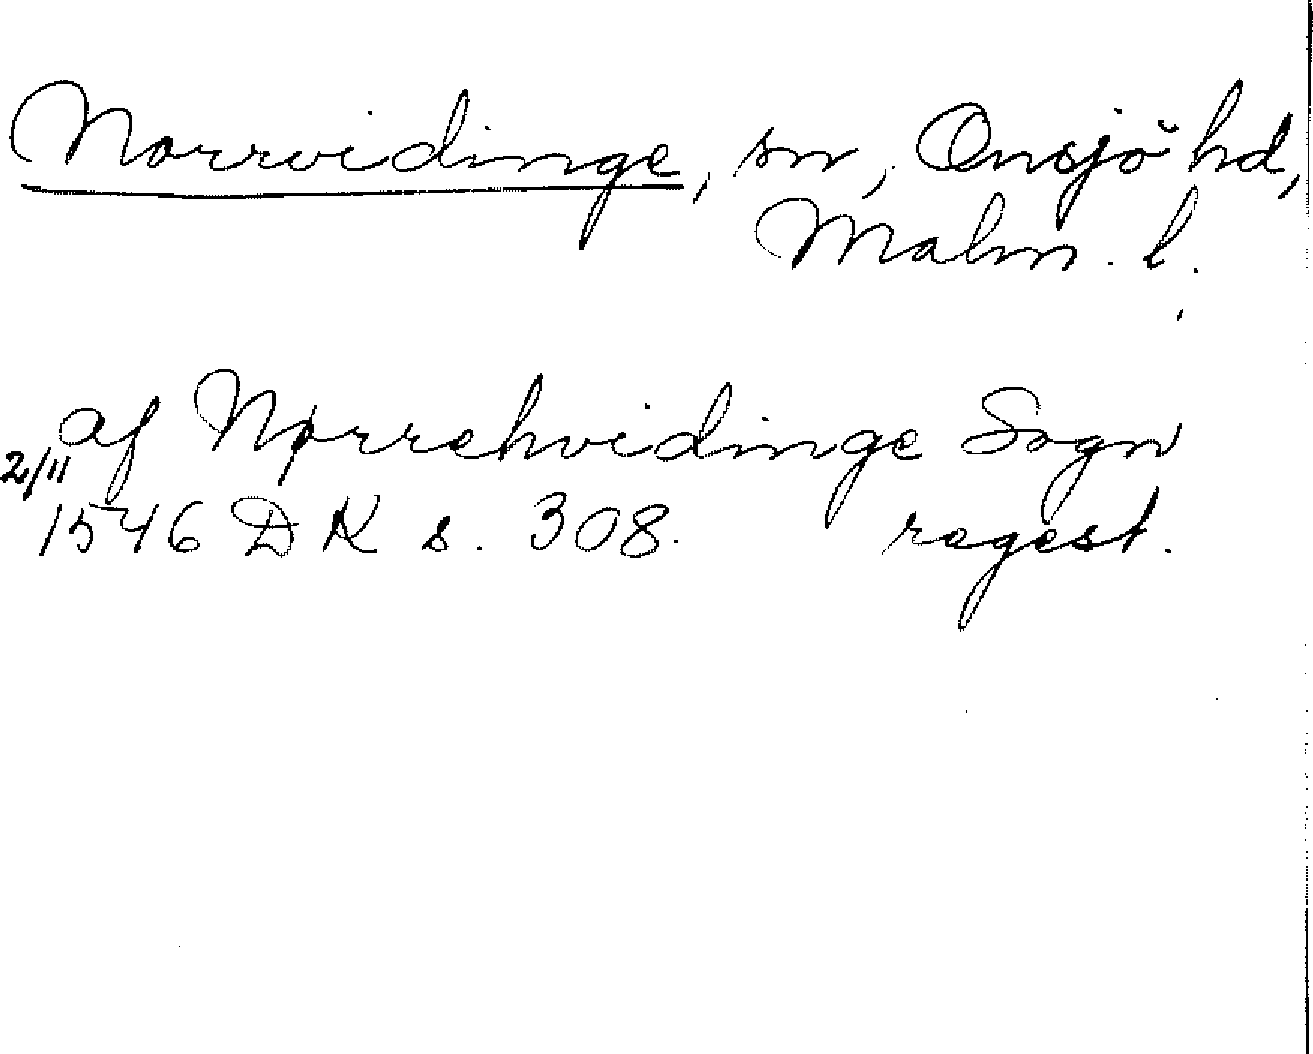 Norrvidinge, sn, Onsjö hd,
Malm. l.
af Nørrehvidinge Sogn
2/11
1546 DK s. 308. regest.